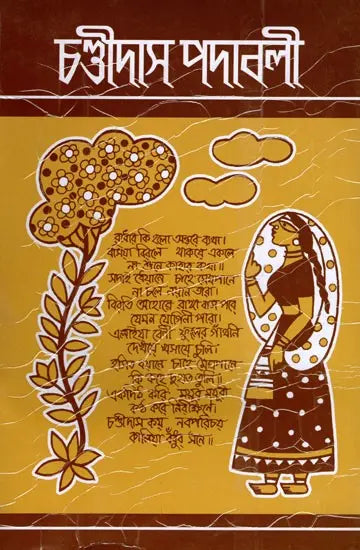 চণ্ডীদাস পদাবলী
রাধার কি হলো অন্তরে ব্যথা।
বসিয়া বিরলে থাকয়ে একলে
না শুনে কাহার কথা॥
সদাই ধেয়ানে চাহে মেঘপানে
না চলে নয়ান তারা।
বিরতি আহারে রাঙা বাস পরে
যেমন যোগিনী পারা॥
এলাইয়া বেণী ফুলের গাঁথনি
দেখয়ে খসায়ে চুলি।
হসিত বয়ানে চাহে মেঘপানে
কি কহে দুহাত তুলি॥
একদিঠ করি ময়ূর ময়ূরী
কণ্ঠ করে নিরীক্ষণে।
চণ্ডীদাস কয় নবপরিচয়
কালিয়া বঁধুর সনে॥